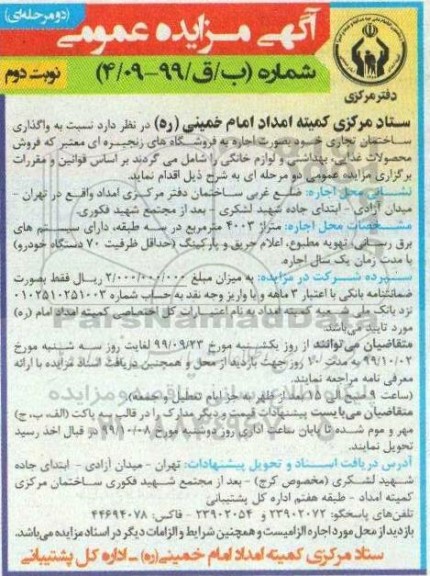 (دومرحله‌ای)
آگهی مزایده عمومی
شماره (ب/ق/۹۹-۴/۰۹)
نوبت دوم
دفتر مرکزی
ستاد مرکزی کمیته امداد امام خمینی (ره) در نظر دارد نسبت به واگذاری
ساختمان تجاری خود بصورت اجاره به فروشگاه های زنجیره ای معتبر که فروش
محصولات غذایی، بهداشتی و لوازم خانگی را شامل می گردید بر اساس قوانین و مقررات
برگزاری مزایده عمومی دو مرحله ای به شرح ذیل اقدام نماید.
نشانی محل اجاره: ضلع غربی ساختمان دفتر مرکزی امداد واقع در تهران -
میدان آزادی - ابتدای جاده شهید لشکری - بعد از مجتمع شهید فکوری.
مشخصات محل اجاره: متراژ ۴۰۰۳ مترمربع در سه طبقه، دارای سیستم های
برق رسانی، تهویه مطبوع، اعلام حریق و پارکینگ (حداقل ظرفیت ۷۰ دستگاه خودرو)
با مدت زمان یک سال اجاره.
سپرده شرکت در مزایده: به میزان مبلغ ۲/۰۰۰/۰۰۰/۰۰۰ ریال فقط بصورت
ضمانتنامه بانکی با اعتبار ۳ ماهه و یا واریز وجه نقد به حساب شماره ۰۱۰۲۵۱۰۲۵۱۰۰۳
نزد بانک ملی شعبه کمیته امداد به نام اعتبارات کل اختصاصی کمیته امداد امام (ره)
مورد تایید می‌باشد.
متقاضیان می‌توانند از روز یکشنبه مورخ ۹۹/۰۹/۲۳ لغایت روز سه شنبه مورخ
۹۹/۱۰/۰۲ به مدت ۱۰ روز جهت بازدید از محل و همچنین دریافت اسناد مزایده با ارائه
معرفی نامه مراجعه نمایند.
(ساعت ۹ صبح الی ۱۵ بعد از ظهر به جز ایام تعطیل و جمعه)
متقاضیان می‌بایست پیشنهادات قیمت و دیگر مدارک را در قالب سه پاکت (الف، ب، ج)
مهر و موم شده تا پایان ساعت اداری روز دوشنبه مورخ ۹۹/۱۰/۰۸ در قبال اخذ رسید
تحویل نمایند.
آدرس دریافت اسناد و تحویل پیشنهادات: تهران - میدان آزادی - ابتدای جاده
شهید لشگری (مخصوص کرج) - بعد از مجتمع شهید فکوری ساختمان مرکزی
کمیته امداد - طبقه هفتم اداره کل پشتیبانی
تلفن‌های پاسخگو: ۲۳۹۰۲۰۷۲ و ۲۳۹۰۲۰۵۴ - فاکس: ۴۴۶۹۴۰۷۸
بازدید از محل مورد اجاره الزامیست و همچنین شرایط و الزامات دیگر در اسناد مزایده می‌باشد.
ستاد مرکزی کمیته امداد امام خمینی (ره) - اداره کل پشتیبانی